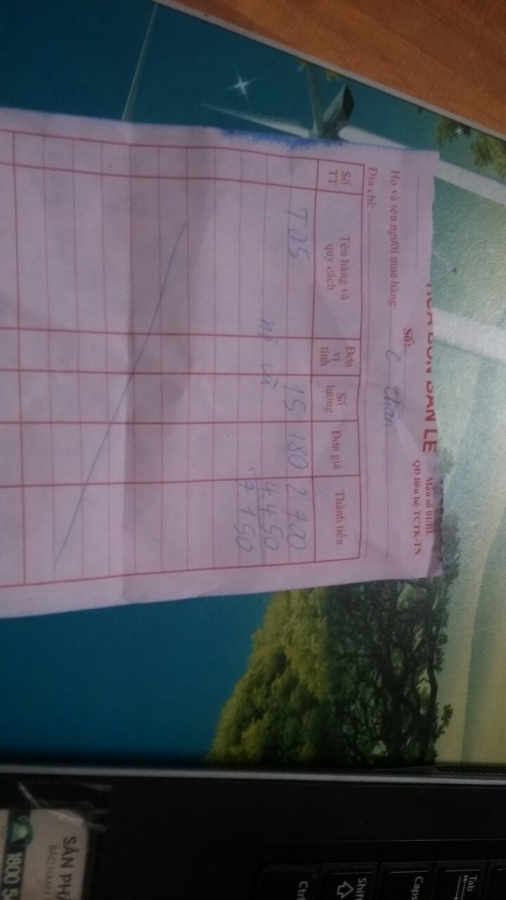 HÓA ĐƠN BÁN LẺ
Mẫu số 01/BL
QĐ liên bộ TCTK-TN
Số:
Họ và tên người mua hàng
Địa chỉ:
Số TT Tên hàng và quy cách Đơn vị tính Số lượng Đơn giá Thành tiền
T05 15 180 2.700
nợ cũ 4.450
7.150
SẢN PH
BẢO HÀNH
1800 5
Tab
Caps
Shift
Ctrl